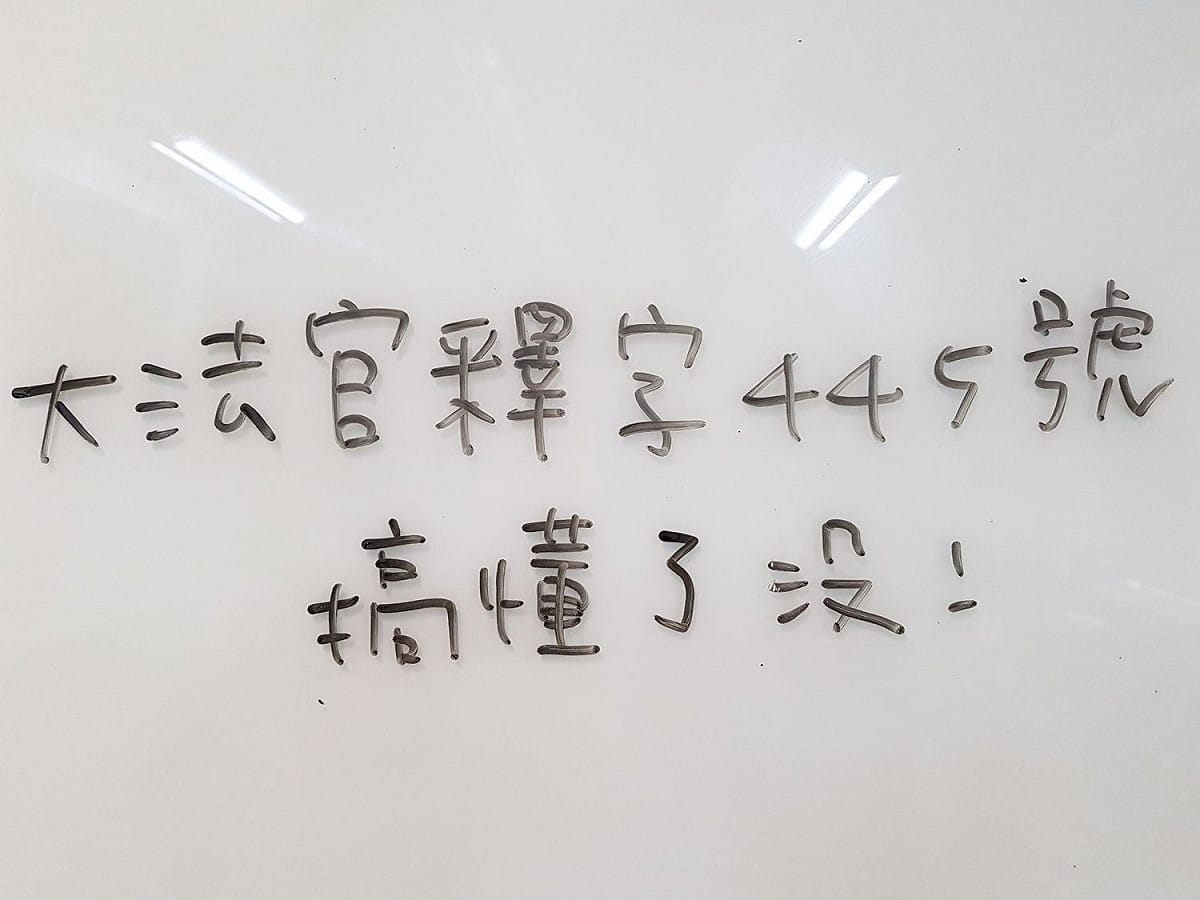 大法官釋字445號
搞懂了没!